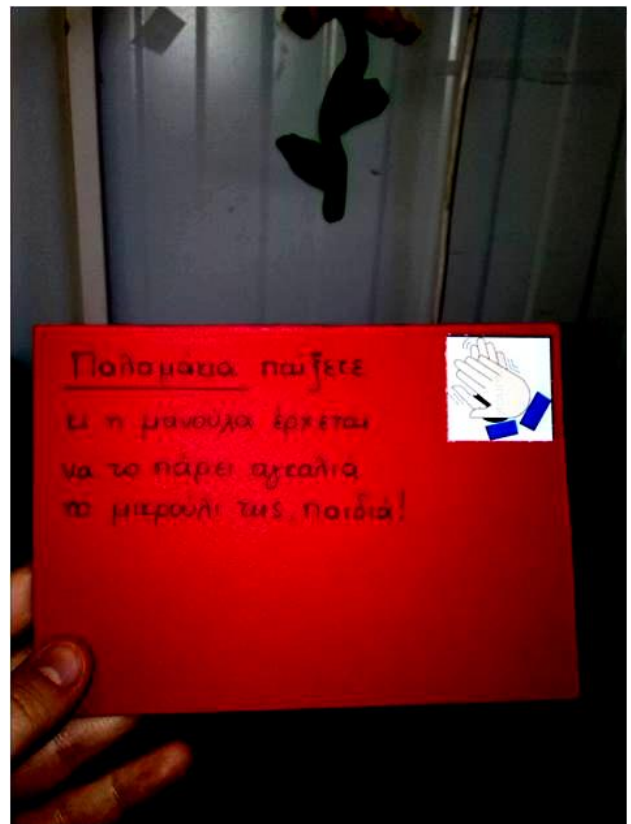 Παλαμάκια παίξετε
κι η μανούλα έρχεται
να το πάρει αγκαλιά
το μικρούλι της, παιδιά!